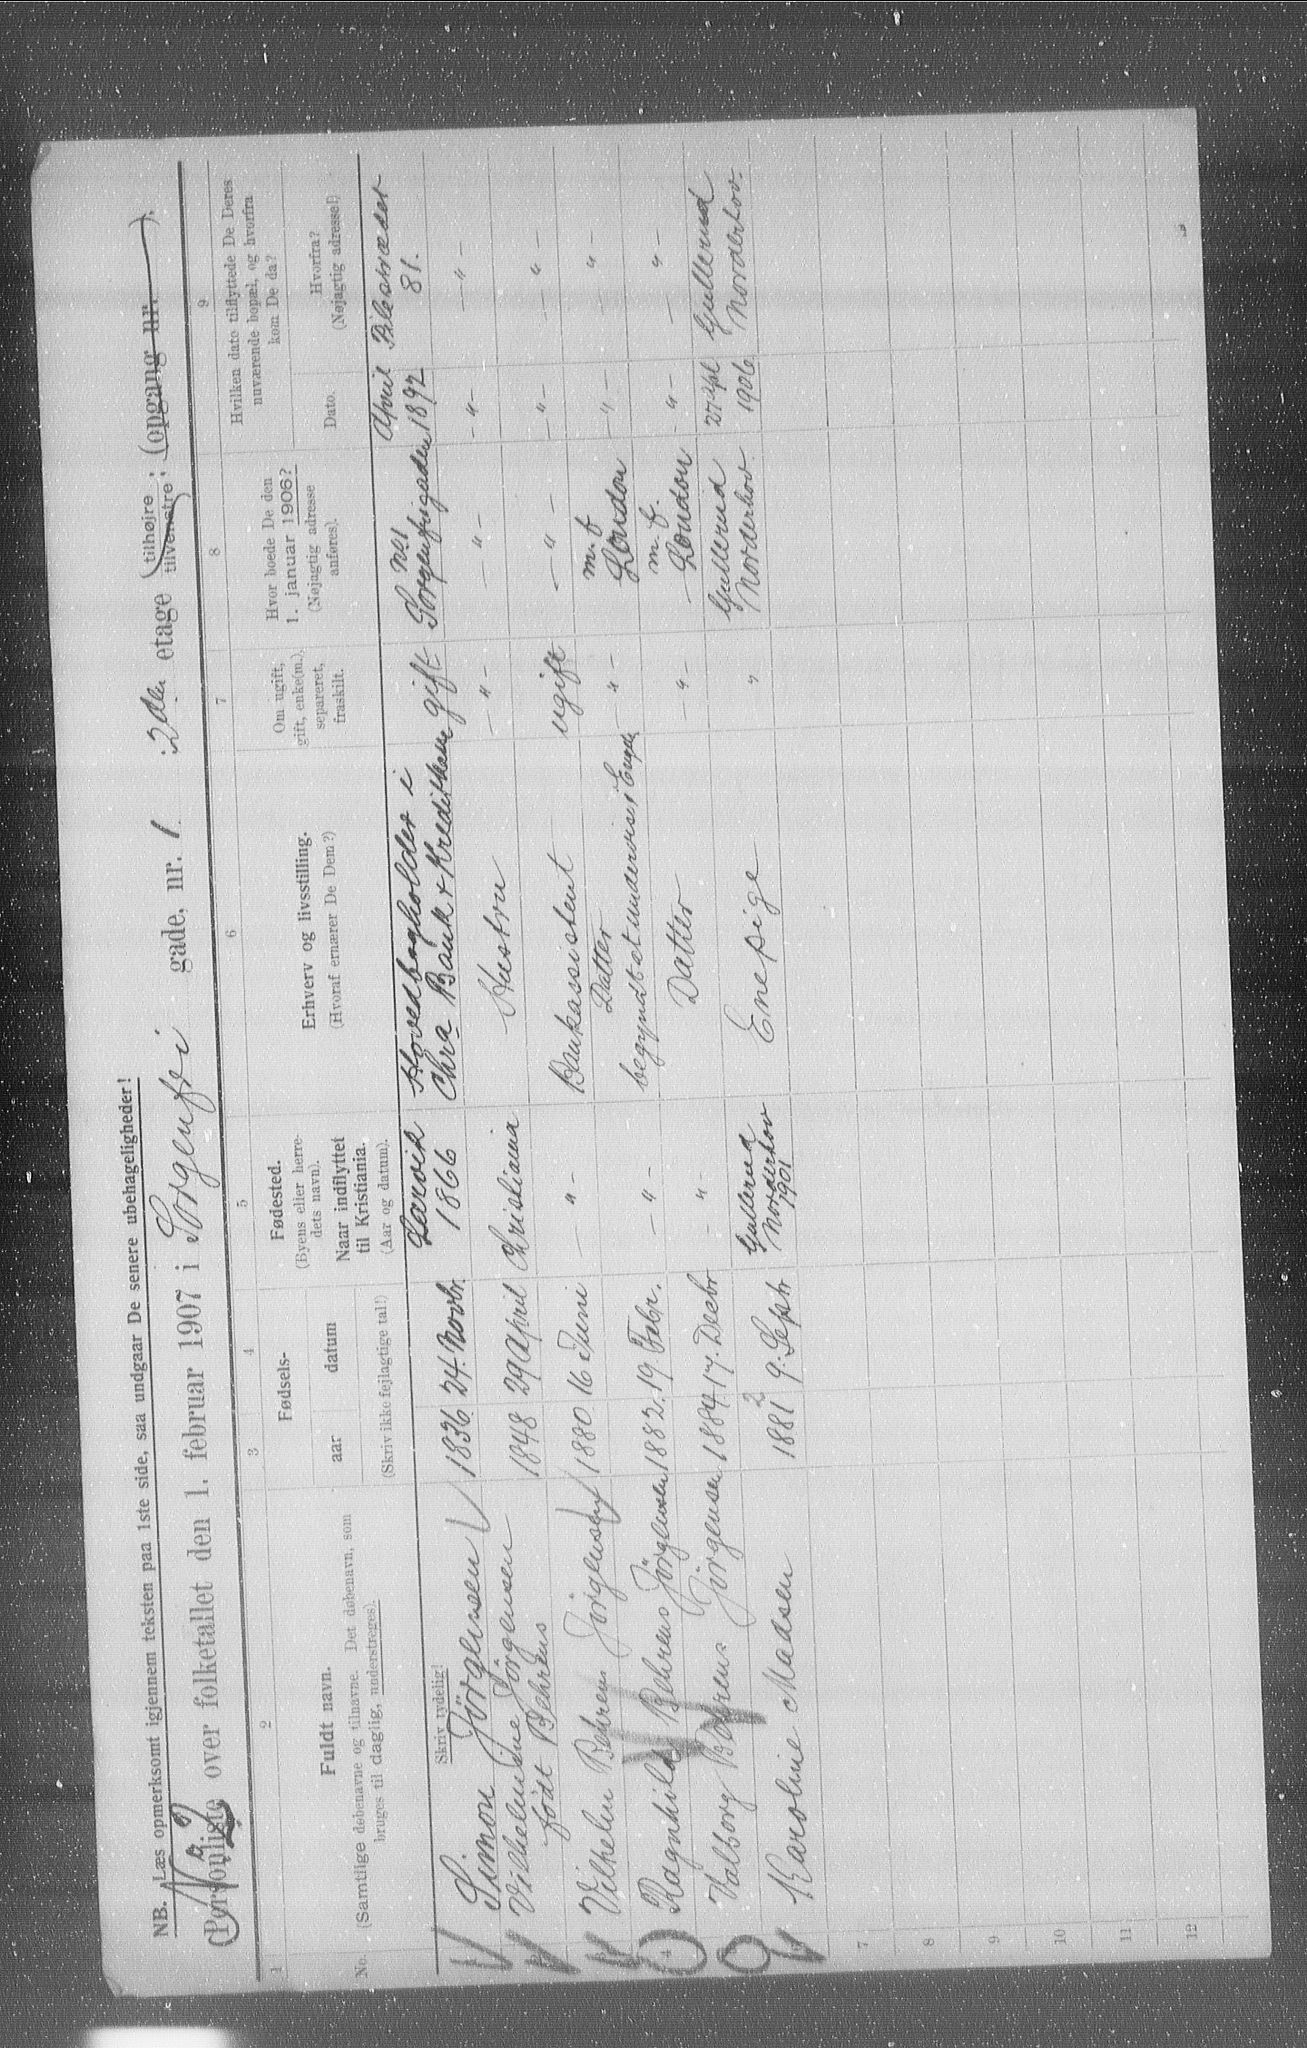 NB. Læs opmerksomt igjennem teksten paa 1ste side, saa undgaar De senere ubehageligheder!
No 2
(Personliste over folketallet den 1. februar 1907 i Sorgenfri gade, nr. 1 2den etage (tilhøjre; tilvenstre; (opgang nr. ).
1 2 3 4 5 6 7 8 9
No.
Fuldt navn.
(Samtlige døbenavne og tilnavne. Det døbenavn, som
bruges til daglig, understreges).
Fødsels-
aar datum
(Skriv ikke fejlagtige tal!)
Fødested.
(Byens eller herre-
dets navn).
Naar indflyttet
til Kristiania.
(Aar og datum).
Erhverv og livsstilling.
(Hvoraf ernærer De Dem?)
Om ugift,
gift, enke(m.),
separeret,
fraskilt.
Hvor boede De den
1. januar 1906?
(Nøjagtig adresse
anføres).
Hvilken dato tilflyttede De Deres
nuværende bopæl, og hvorfra
kom De da?
Dato.
Hvorfra?
(Nøjagtig adresse!)
Skriv tydelig!
Simon Jörgensen 1836 24. Novbr. Larvik 1866 Hovedbogholder i Chra Bank & Kreditkasse gift No 1 Sorgenfrigaden April 1892 Pilestrædet 81.
Vilhelmine Jörgensen født Behrens 1848 29 April Christiania Hustru —"— —"— —"— —"—
Vilhelm Behrens Jörgensen 1880 16 Juni —"— Bankassistent ugift —"— —"— —"—
4 Ragnhild Behrens Jörgensen 1882. 19. Febr. —"— Datter begyndt at undervise i Engelsk —"— m. t. London —"— —"—
Valborg Behrens Jörgensen 1884 17. Decbr —"— Datter —"— m. t. London —"— —"—
Karoline Madsen 1881 2 9. Septr Gullerud Norderhov 1901 Enepige " Gullerud Norderhov 27 Apl 1906 Gullerud Norderhov.
7
8
9
10
11
12